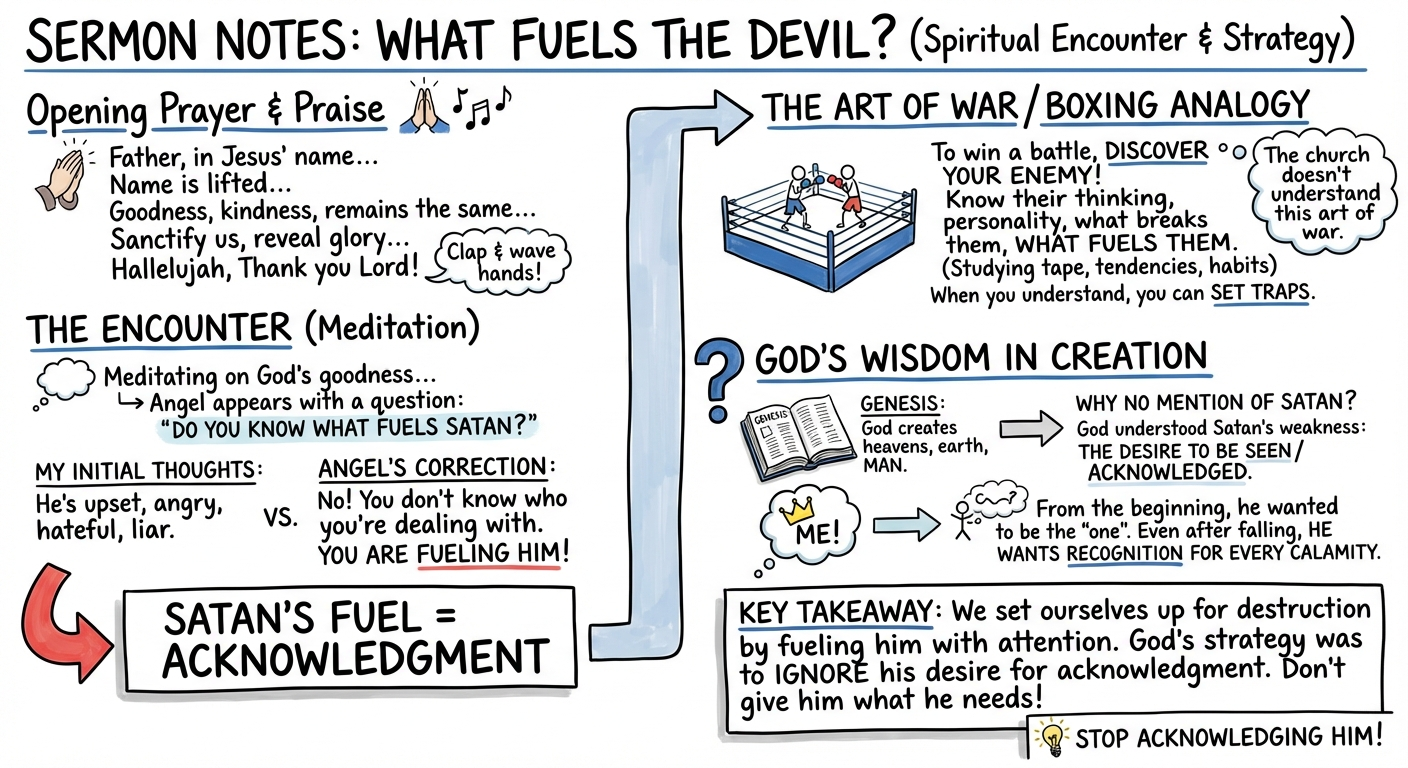 SERMON NOTES: WHAT FUELS THE DEVIL? (Spiritual Encounter & Strategy)
Opening Prayer & Praise
Father, in Jesus' name...
Name is lifted...
Goodness, kindness, remains the same...
Sanctify us, reveal glory...
Hallelujah, Thank you Lord!
Clap & wave
hands!
THE ENCOUNTER (Meditation)
Meditating on God's goodness...
Angel appears with a question:
"DO YOU KNOW WHAT FUELS SATAN?"
MY INITIAL THOUGHTS:
He's upset, angry,
hateful, liar.
VS.
ANGEL'S CORRECTION:
No! You don't know who
you're dealing with.
YOU ARE FUELING HIM!
SATAN'S FUEL =
ACKNOWLEDGMENT
THE ART OF WAR/BOXING ANALOGY
To win a battle, DISCOVER
YOUR ENEMY!
Know their thinking,
personality, what breaks
them, WHAT FUELS THEM.
(Studying tape, tendencies, habits)
When you understand, you can SET TRAPS.
The church
doesn't
understand
this art of
war.
? GOD'S WISDOM IN CREATION
GENESIS
GENESIS:
God creates
heavens, earth,
MAN.
WHY NO MENTION OF SATAN?
God understood Satan's weakness:
THE DESIRE TO BE SEEN/
ACKNOWLEDGED.
ME!
?
From the beginning, he wanted
to be the "one". Even after falling, HE
WANTS RECOGNITION FOR EVERY CALAMITY.
KEY TAKEAWAY: We set ourselves up for destruction
by fueling him with attention. God's strategy was
to IGNORE his desire for acknowledgment. Don't
give him what he needs!
STOP ACKNOWLEDGING HIM!